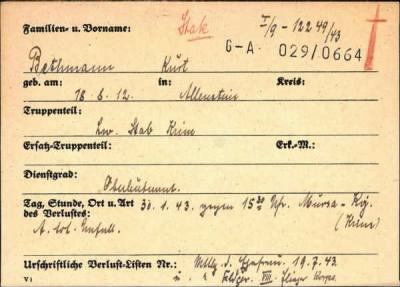 Familien- u. Vorname: Stab I/9 - 122 49/43
G-A 029/0664
Bethmann Kurt
geb. am: in: Kreis:
18. 6. 12. Allenstein
Truppenteil:
Lw. Stab Krim
Ersatz-Truppenteil: Erk.-M.:
Dienstgrad:
Oberleutnant
Tag, Stunde, Ort u. Art 30. 1. 43. gegen 15 30 Uhr.
des Verlustes: (Krim)
A. töt. Unfall.
Urschriftliche Verlust-Listen Nr.: d. 19. 7. 43
VIII. Flieger Korps.
V1